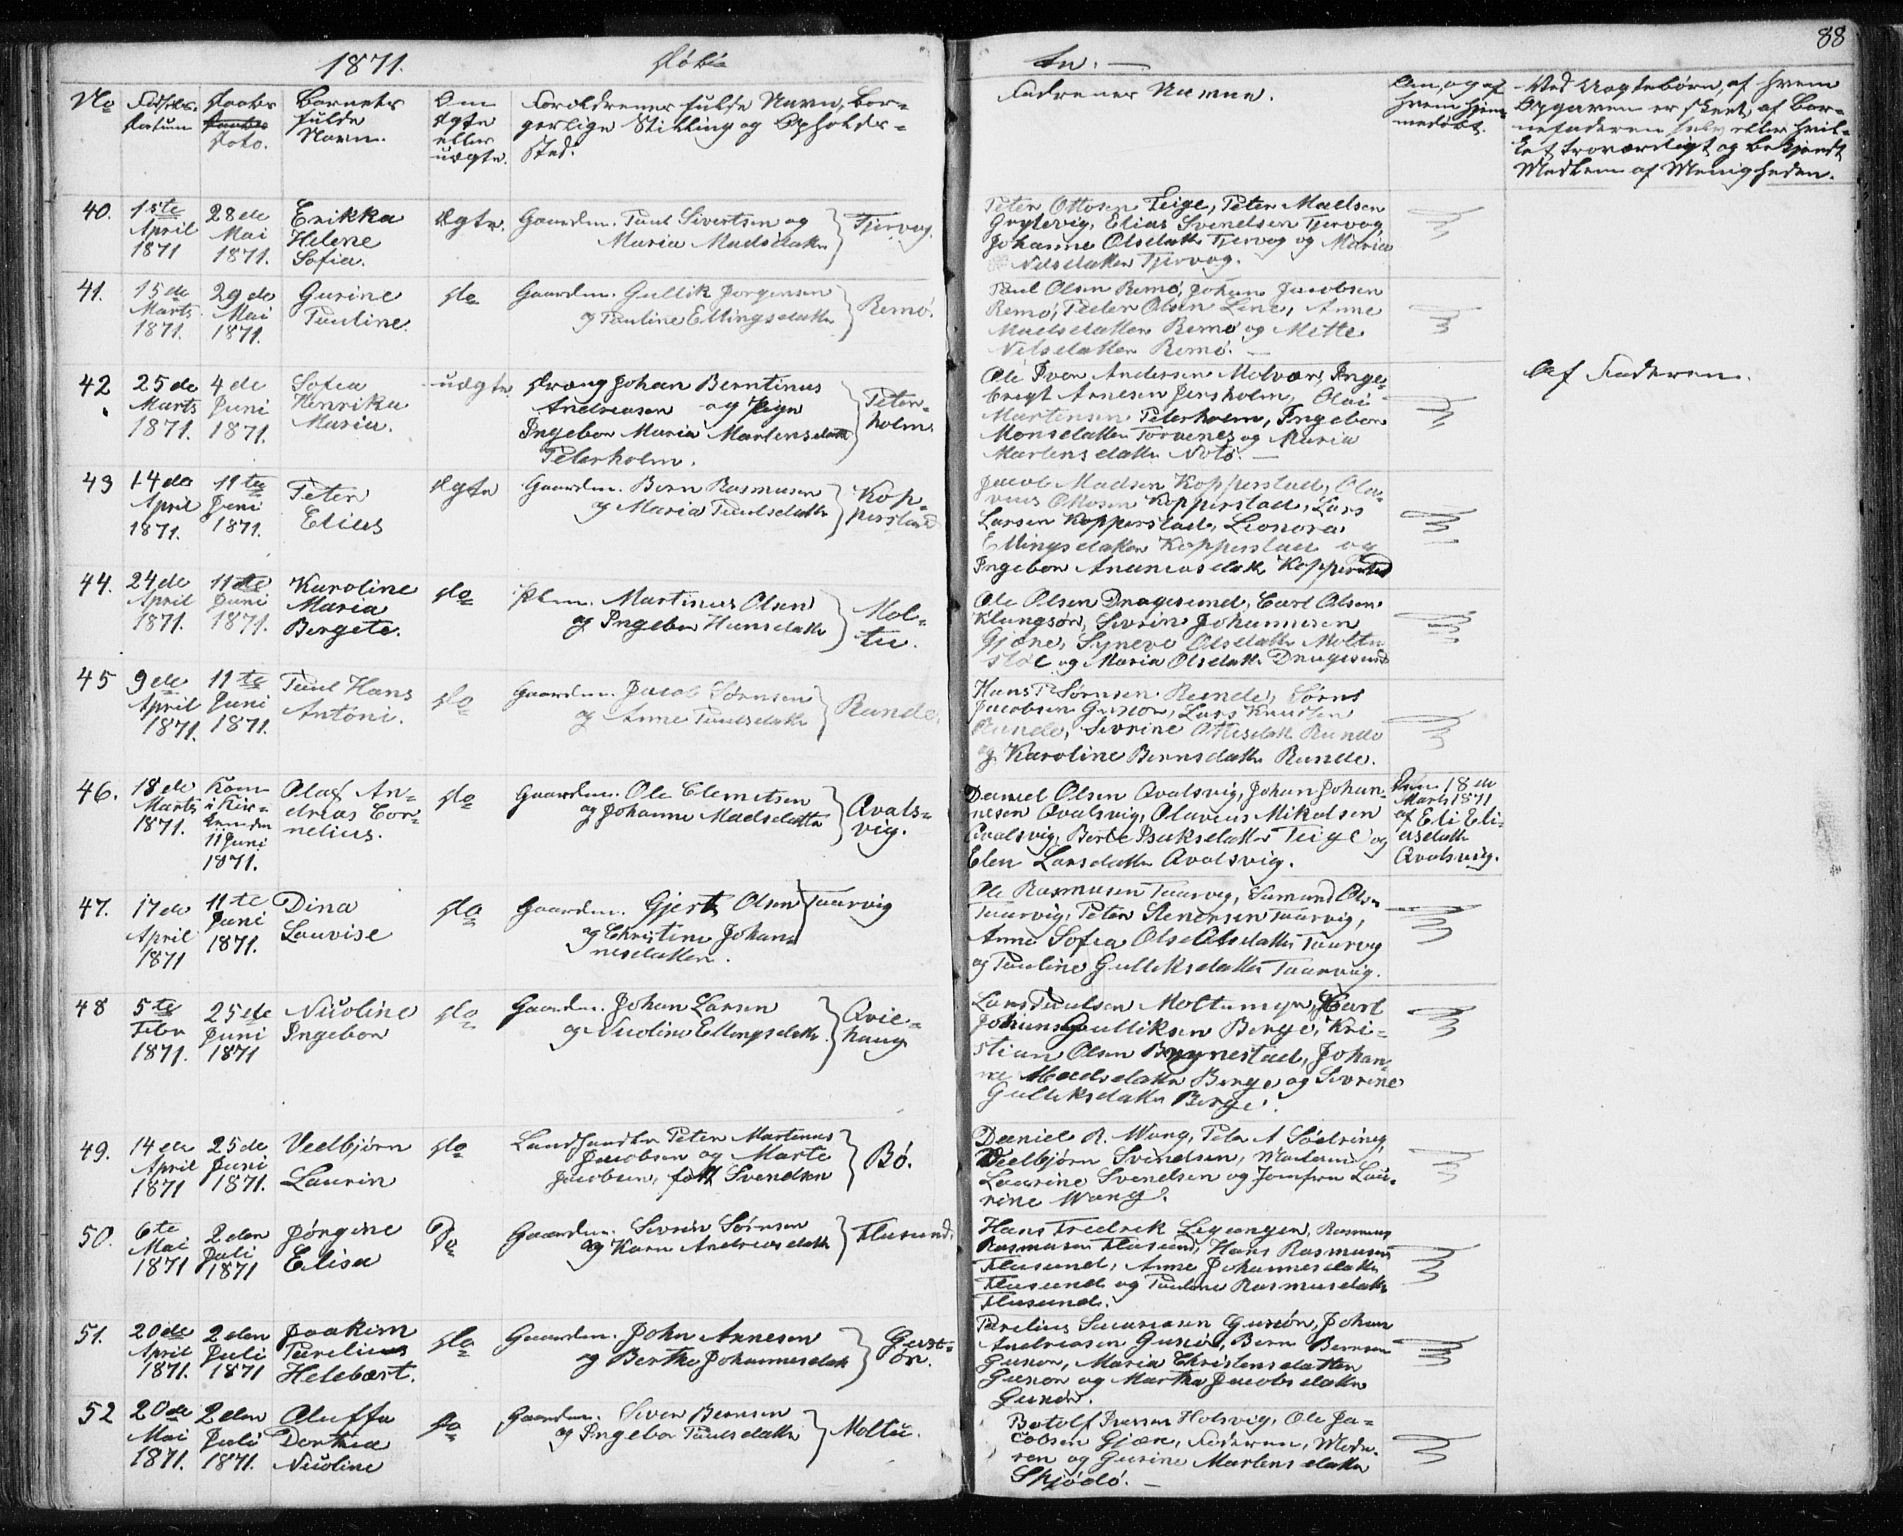 88
1871. Døbte.
No
Fødsels-
datum
Daabs
Dato.
Barnets
fulde
Navn.
Om
ægte
eller
uægte.
Forældrenes fulde Navn, bor-
gerlige Stilling og Opholds-
sted.
Faddernes Navne.
Om, og af
hvem hjem-
medøbt.
Ved Uægtebørn, af hvem
Opgaven er skeet, af Bar-
nefaderen selv eller hvil-
ket troværdigt og bekjendt
Medlem af Menigheden.
40.
1ste
April
1871
28de
Mai
1871.
Erikka
Helene
Sofia.
Ægte.
Gaardm. Paul Sivertsen og
Maria Madsdatter
Tjervog.
Peter Ottosen Teige, Peter Madsen
Grytevig, Elias Svendsen Tjervog,
Johanne Olsdatter Tjervog og Maria
Nilsdatter Tjervog.
41.
15de
Marts
1871.
29de
Mai
1871.
Gurine
Pauline.
do
Gaardm. Gullik Jørgensen
og Pauline Ellingsdatter
Remö.
Paul Olsen Remö, Johan Jacobsen
Remö, Peder Olsen Lene, Anne
Madsdatter Remö og Mette
Nilsdatter Remö.
42
25de
Marts
1871.
4de
Juni
1871.
Sofia
Henrika
Maria.
uægte
Dræng Johan Berntinus
Andreasen og Pige
Ingebor Maria Martensdatter
Peterholm.
Peter-
holm.
Ole Iver Andersen Molvær, Inge-
brigt Arnesen Jensholm, Olai
Martinsen Peterholm, Ingebor
Monsdatter Torvenes og Maria
Martensdatter Notö.
Af Faderen.
43
14de
April
1871.
11te
Juni
1871.
Peter
Elias
Ægte
Gaardm. Bern Rasmusen
og Maria Paulsdatter
Kop-
perstad
Jacob Madsen Kopperstad, Ola-
vius Ottosen Kopperstad, Lars
Larsen Kopperstad, Leonora
Ellingsdatter Kopperstad og
Ingebor Ananiasdatter Kopperstad
44.
24de
April
1871.
11te
Juni
1871.
Karoline
Maria
Bergete.
do
Plm. Martinus Olsen
og Ingebor Hansdatter
Mol-
tu.
Ole Olsen Dragesund, Carl Olsen
Klungsör, Sivrin Johannesen
Gjære, Syneve Olsdatter Moltu-
stöl og Maria Olsdatter Dragesund
45
9de
April
1871.
11te
Juni
1871.
Paul Hans
Antoni.
do
Gaardm. Jacob Sørnsen
og Anne Paulsdatter
Runde.
Hans P. Sørnsen Runde, Sørns
Jacobsen Gursör, Lars Knutsen
Runde, Sivrine Ottesdatter Runde
og Karoline Bernsdatter Runde.
46.
18de
Marts
1871.
Kom
i Kir-
ken den
11 Juni
1871.
Olaf An-
dreas Cor-
nelius.
do
Gaardm. Ole Clemetsen
og Johanne Madsdatter
Qvals-
vig.
Daniel Olsen Qvalsvig, Johan Johan-
nesen Qvalsvig, Olavius Mikalsen
Qvalsvig, Berte Isaksdatter Teige og
Elen Larsdatter Qvalsvig.
Den 18de
Marts 1871
af Eli Eli-
asdatter
Qvalsvig.
47.
17de
April
1871
11te
Juni
1871.
Dina
Lauvise
do
Gaardm. Gjert Olsen
og Christine Johan-
nesdatter.
Taarvig
Ole Rasmusen Taarvig, Samund Olsen
Taarvig, Peter Stenersen Taarvig,
Anne Sofia Olsdatter Taarvig
og Pauline Gulliksdatter Taarvig.
48
5te
Febr
1871.
25de
Juni
1871
Nicoline
Ingebor
do
Gaardm. Johan Larsen
og Nicoline Ellingsdatter
Qvie-
haug
Lars Paulsen Moltumyr, Carl
Johan Gulliksen Berge, Kri-
stian Olsen Brynestad, Johan-
ne Madsdatter Berge og Sivrine
Gulliksdatter Berge.
49.
14de
April
1871
25de
Juni
1871.
Vedbjørn
Laurin
do
Landhandler Peter Martinus
Jacobsen og Marte
Jacobsen, født Svendsen
Bö.
Daniel R. Wang, Peter A Södring,
Vedbjørn Svendsen, Madam
Laurine Svendsen og Jomfru Lau-
rine Wang.
50.
6te
Mai
1871
2den
Juli
1871
Jørgine
Elisa
Do
Gaardm. Sivrin Sørnsen
og Karn Andreasdatter
Flusund.
Hans Fredrek Legangen, Rasmus
Rasmusen Flusund, Hans Rasmusen
Flusund, Anne Johannesdatter
Flusund og Pauline Rasmusdatter
Flusund.
51.
20de
April
1871.
2den
Juli
1871
Joakim
Parelius
Helebært.
do
Gaardm. John Arnesen
og Berthe Johannesdatter
Gurs-
ör.
Parelius Sacariasen Gursör, Johan
Andreasen Gursör, Bern Bernsen
Gursör, Maria Christensdatter
Gursör og Martha Jacobsdatter
Gursör.
52
20de
Mai
1871.
2den
Juli
1871.
Aluffa
Dorthea
Nicoline
do
Gaardm. Siver Bernsen
og Ingebor Paulsdatter
Moltu.
Botolf Iversen Holsvig, Ole Ja-
cobsen Gjære, Faderen, Mode-
ren og Gurine Martensdatter
Skjödö.